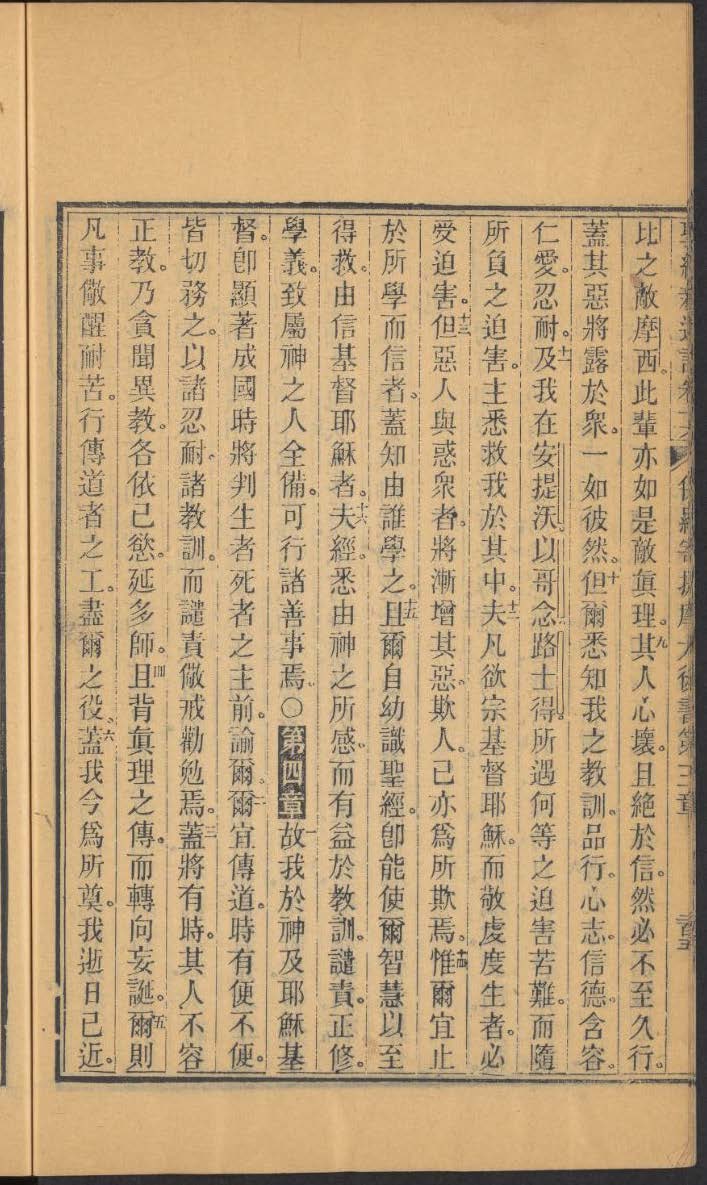 比之敵摩西。此輩亦如是敵眞理。九其人心壞。且絕於信。然必不至久行。
蓋其惡將露於衆。一如彼然。十但爾悉知我之教訓。品行。心志。信德。含容。
仁愛。忍耐。十一及我在安提沃。以哥念。路士得。所遇何等之迫害苦難。而隨
所負之迫害。主悉救我於其中。十二夫凡欲宗基督耶穌。而敬虔度生者。必
受迫害。十三但惡人與惑衆者。將漸增其惡。欺人。己亦爲所欺焉。十四惟爾宜止
於所學而信者。蓋知由誰學之。十五且爾自幼識聖經。卽能使爾智慧以至
得救。由信基督耶穌者。十六夫經。悉由神之所感。而有益於教訓。譴責。正修。
學義。致屬神之人全備。可行諸善事焉。○第四章一故我於神及耶穌基
督。卽顯著成國時將判生者死者之主前。諭爾。二爾宜傳道。時有便不便。
皆切務之。以諸忍耐。諸教訓。而譴責儆戒勸勉焉。三蓋將有時。其人不容
正教。乃貪聞異教。各依己慾。延多師。四且背眞理之傳。而轉向妄誕。五爾則
凡事儆醒耐苦。行傳道者之工。盡爾之役。六蓋我今爲所奠。我逝日已近。